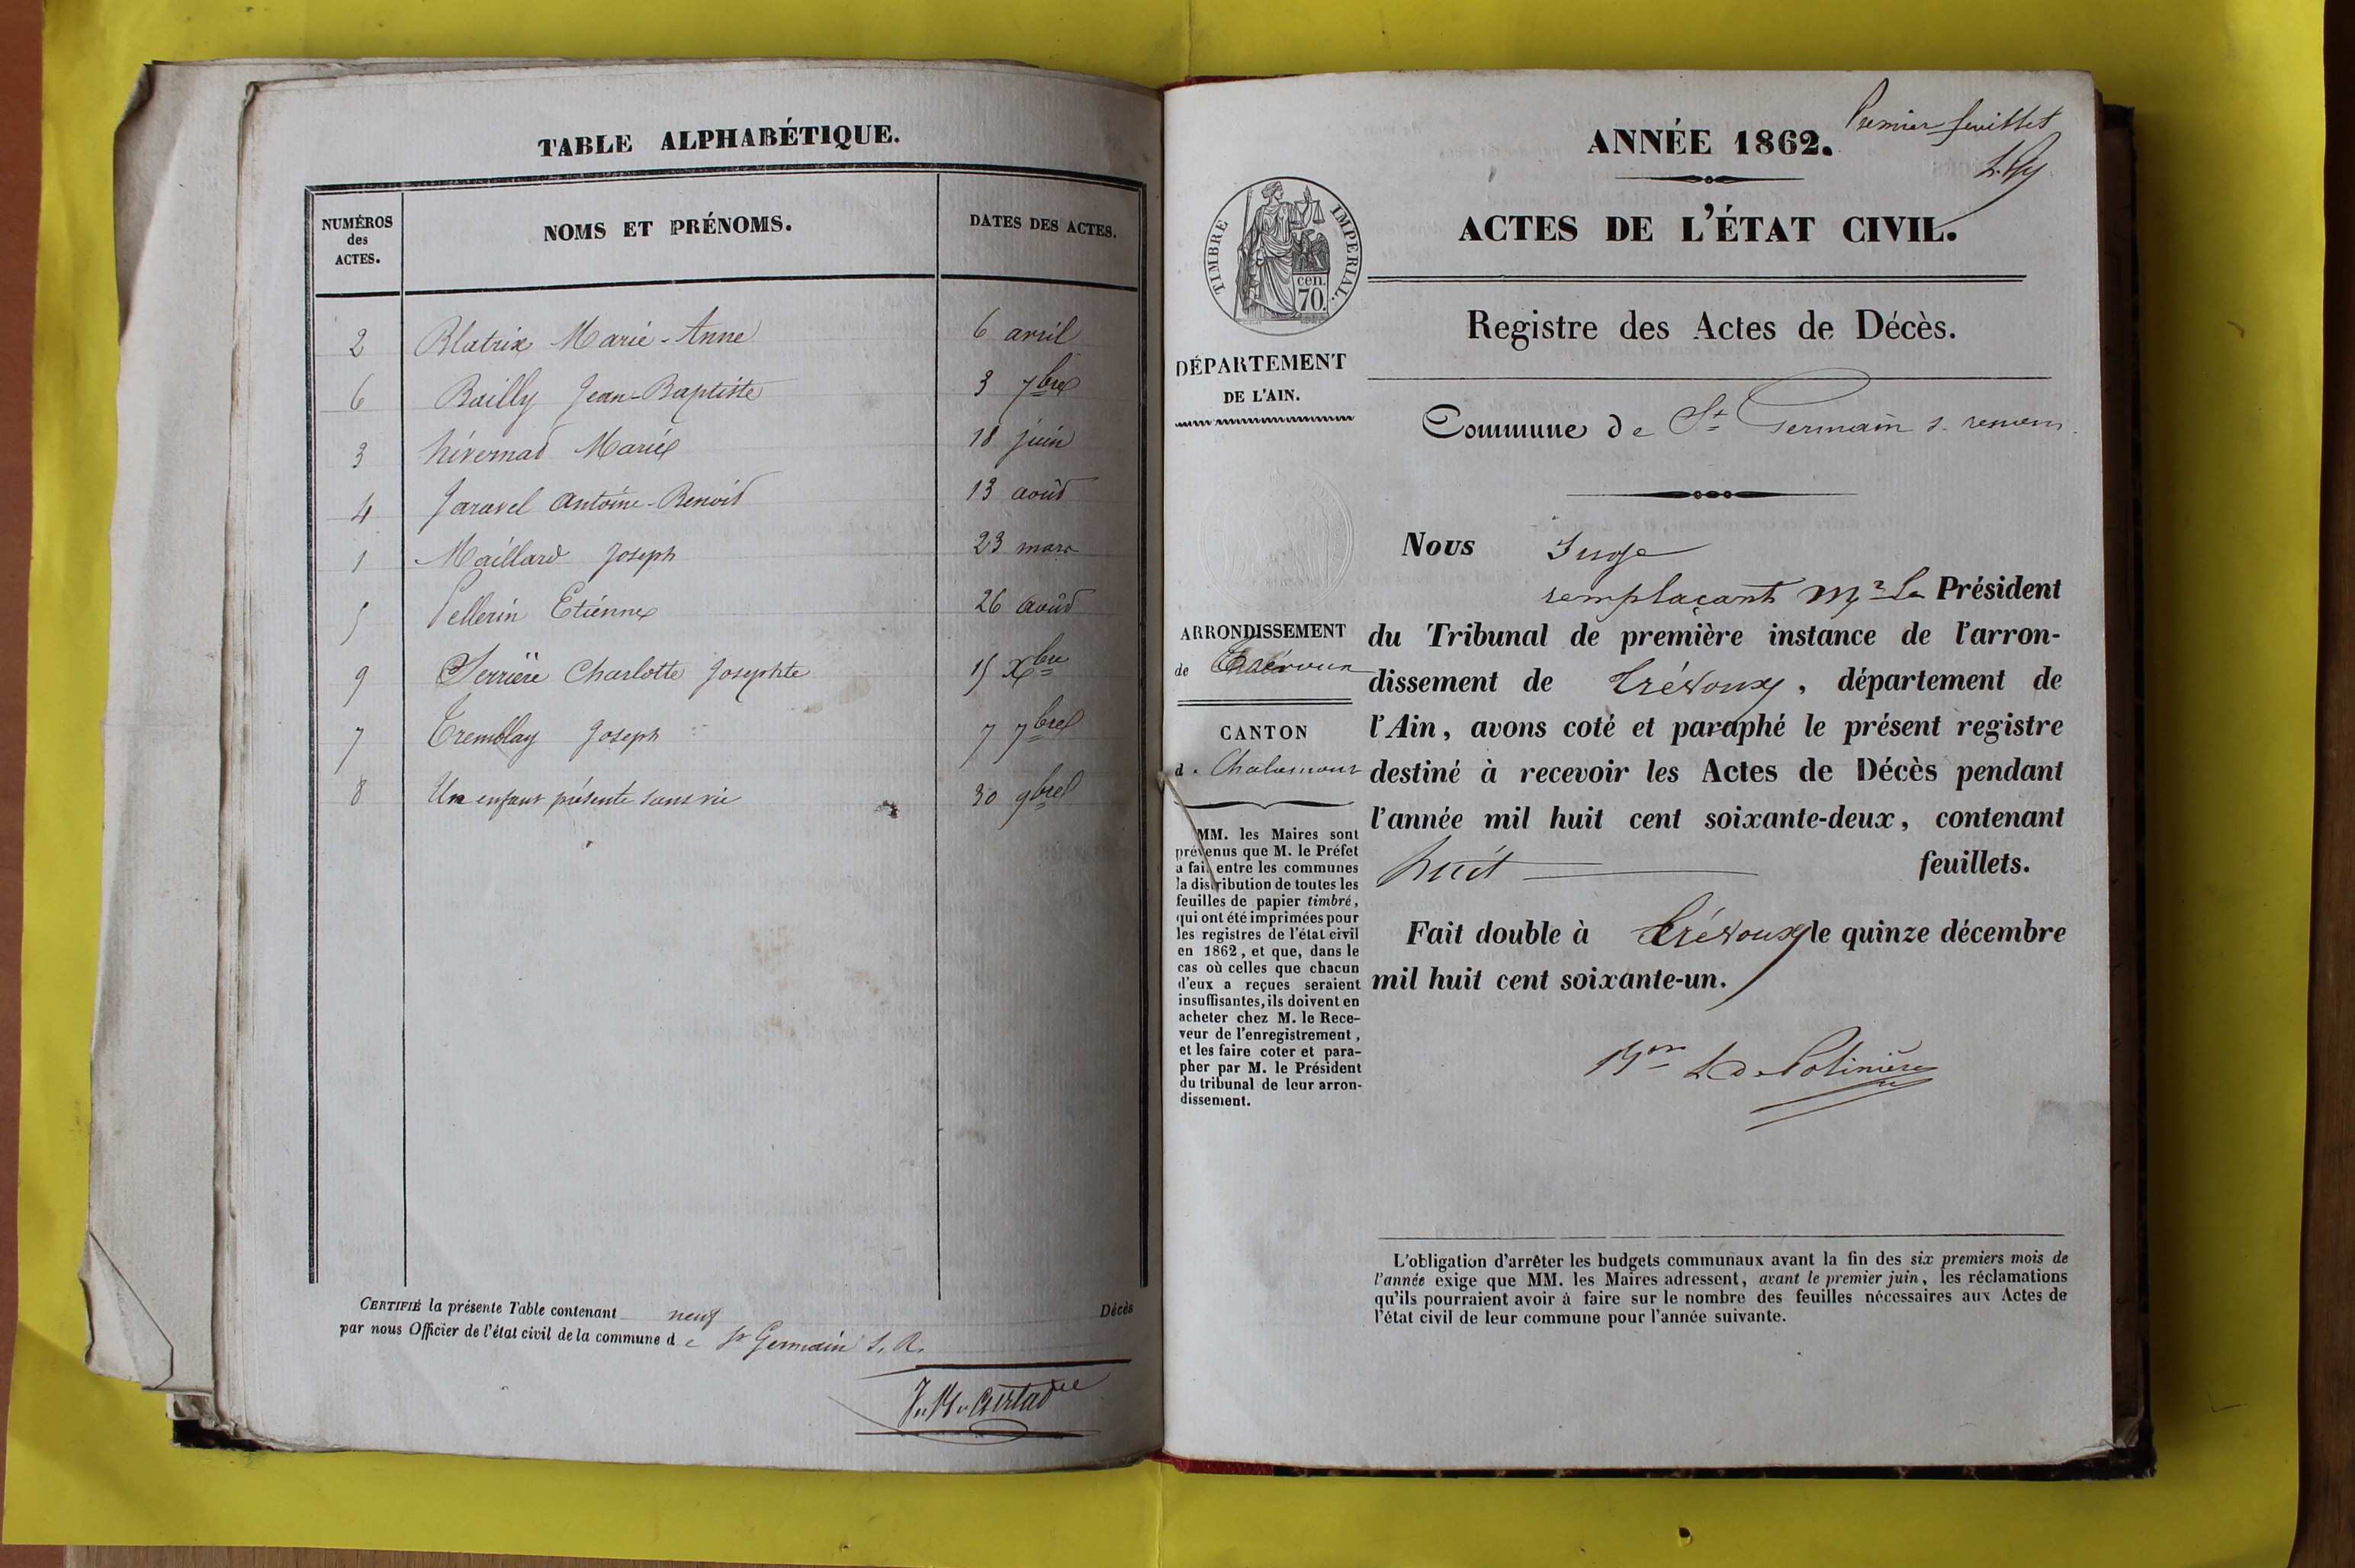 TABLE ALPHABÉTIQUE.
NUMÉROS des ACTES. NOMS ET PRÉNOMS. DATES DES ACTES.
2 Blatrix Marie-Anne 6 avril
6 Bailly Jean-Baptiste 3 7bre
3 hivernad Marie 18 juin
4 Jaravel Antoine-Benoid 13 août
1 Maillard Joseph 23 mars
5 Pellerin Etienne 26 août
9 Serrière Charlotte Josephte 15 Xbre
7 Tremblay Joseph 7 7bre
8 Un enfant présenté sans vie 30 9bre
CERTIFIÉ la présente Table contenant neuf Décès
par nous Officier de l'état civil de la commune de St Germain S. R.
Premier feuillet
ANNÉE 1862.
ACTES DE L'ÉTAT CIVIL.
TIMBRE IMPERIAL.
cen.
70.
Registre des Actes de Décès.
DÉPARTEMENT
DE L'AIN.
Commune de St Germain s. renom
Nous Juge
remplaçant Mr Le Président
du Tribunal de première instance de l'arron-
dissement de Trévoux, département de
l'Ain, avons coté et paraphé le présent registre
destiné à recevoir les Actes de Décès pendant
l'année mil huit cent soixante-deux, contenant
huit feuillets.
Fait double à Trévoux le quinze décembre
mil huit cent soixante-un.
L de Polinière
ARRONDISSEMENT
de Trévoux
CANTON
d. Chalamont
MM. les Maires sont
prévenus que M. le Préfet
a fait entre les communes
la distribution de toutes les
feuilles de papier timbré,
qui ont été imprimées pour
les registres de l'état civil
en 1862, et que, dans le
cas où celles que chacun
d'eux a reçues seraient
insuffisantes, ils doivent en
acheter chez M. le Rece-
veur de l'enregistrement,
et les faire coter et para-
pher par M. le Président
du tribunal de leur arron-
dissement.
L'obligation d'arrêter les budgets communaux avant la fin des six premiers mois de
l'année exige que MM. les Maires adressent, avant le premier juin, les réclamations
qu'ils pourraient avoir à faire sur le nombre des feuilles nécessaires aux Actes de
l'état civil de leur commune pour l'année suivante.